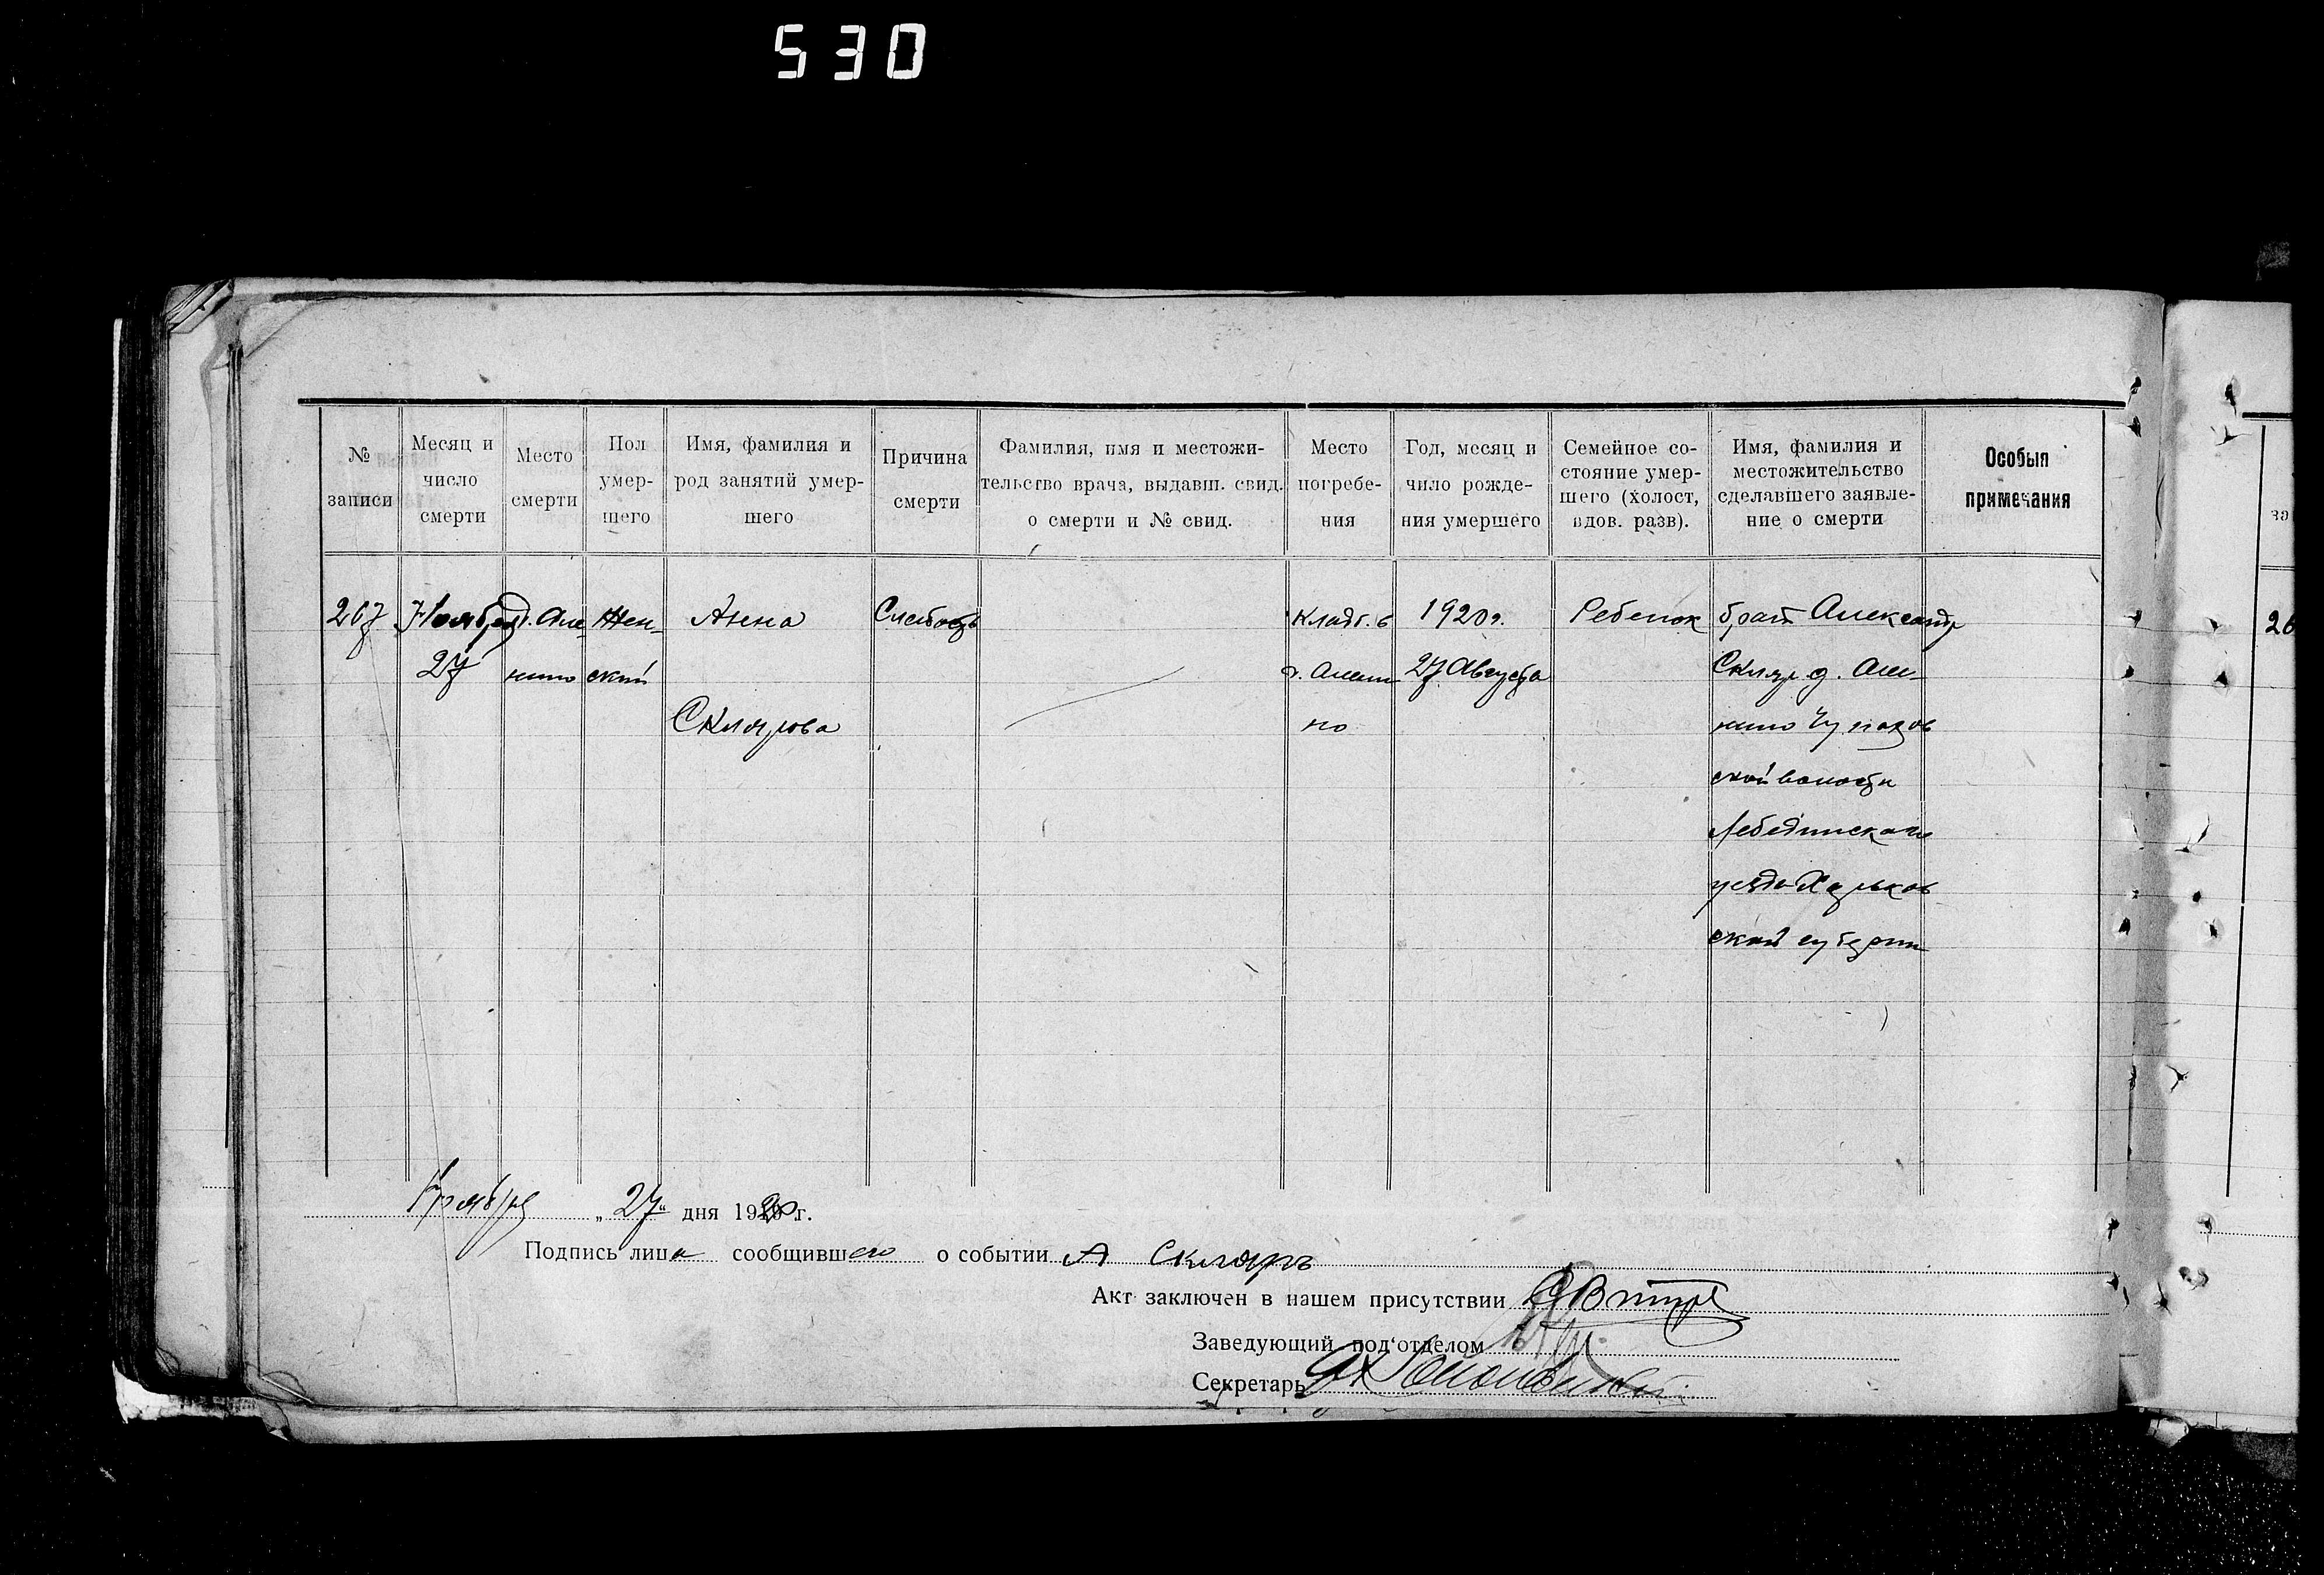 530
№ записи
Месяц и число смерти
Место смерти
Пол умер-шего
Имя, фамилия и род занятий умер-шего
Причина смерти
Фамилия, имя и местожи-тельство врача, выдавш. свид. о смерти и № свид.
Место погребе-ния
Год, месяц и чило рожде-ния умершего
Семейное со-стояние умер-шего (холост, вдов. разв).
Имя, фамилия и местожительство сделавшего заявле-ние о смерти
Особыя примечания
267
Ноября
27
д. Але-
нино
Жен-
ский
Анна
Склярова
Слабость
Кладб. в
д. Аленин
но
1920г.
27 Августа
Ребенок
брат Александр
Скляр д. Але-
нино Чупахов
ской волости
Лебединскаго
уезда Харьков
ской губернии
26
Ноября „27“ дня 1920 г.
Подпись лица сообщившего о событии А Скляръ
Акт заключен в нашем присутствии
Заведующий под‘отделом
Секретарь